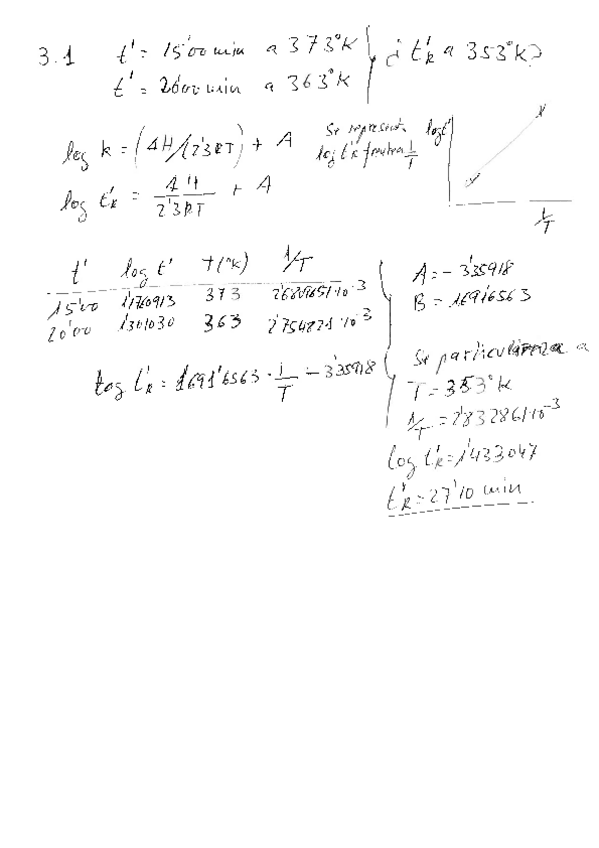 3.1 t' = 15'00 min a 373°K } ¿ t'R a 353°K?
t' = 20'00 min a 363°K
log k = (ΔH/(2'3RT) + A
Se representa log t'R frente a 1/T
log t'
1/T
log t'R = ΔH/2'3RT + A
t' log t' T(°K) 1/T
15'00 1'1760913 373 2'6809651·10⁻³
20'00 1'301030 363 2'754821·10⁻³
log t'R = 1691'6563 · 1/T - 3'35918
A = - 3'35918
B = 1691'6563
Se particulariza a
T = 353°K
1/T = 2'832861·10⁻³
log t'R = 1'433047
t'R = 27'10 min